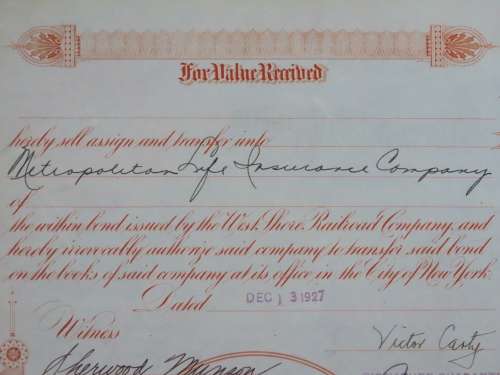 For Value Received
hereby sell assign and transfer unto
Metropolitan Life Insurance Company
of
the within bond issued by the West Shore Railroad Company, and
hereby irrevocably authorize said company to transfer said bond
on the books of said company at its office in the City of New York
Dated DEC 13 1927
Witness
Victor Carty
Sherwood Manson